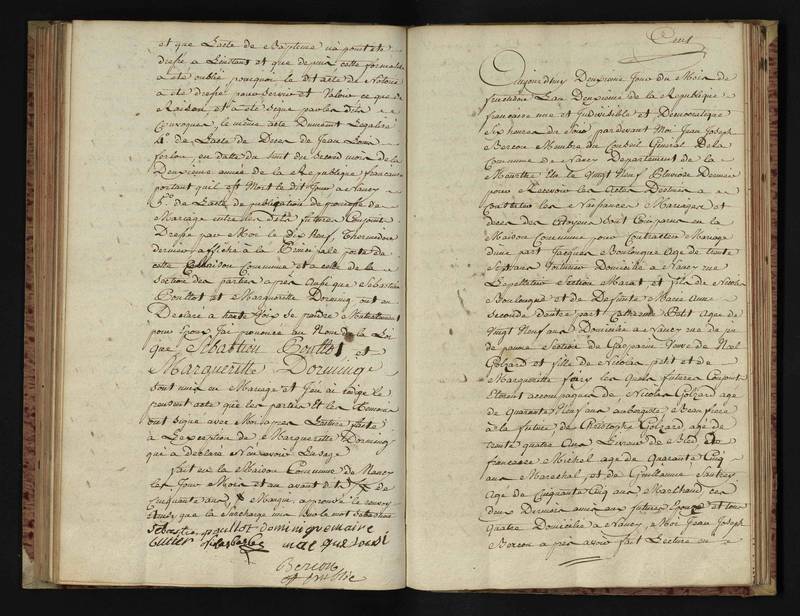 et que L'acte de Baptême n'a point été
dressé à L'instant et que depuis cette formalité
a été oublié pourquoi le dit acte de Notoriété
a été dressé pour servir et Valoir ce que de
Raison, et a été signé par les dits
Convoqués, le même acte Dument Legalisé
4° de L'acte de Deces de Jean Louis
en datte du sept du Second mois de la
Deuxieme année de la Republique francaise
portant qu'il est Mort le dit Jour a Nancy
5° de L'acte de publication de promesse de
Mariage entre les dits futures Conjoints
Dressé par Moi le Dix Neuf Thermidor
dernier, affiché à la Principale porte de
cette Maison Commune et a celle de la
Section des parties apres Aussi que Sebastien
Pouillot et Marguerite Dorming ont
Declaré à haute Voix se prendre Mutuelement
pour Epoux J'ai prononcé au Nom de la Loi
que Sébastien Pouillot et
Marguerite Dorming
Sont unis en Mariage et J'en ai rédigé le
present acte que les parties Et les Temoins
ont Signé avec Moi apres Lecture faite
à L'exception de Marguerite Dorming
qui a déclaré N'en avoir L'usage
fait en la Maison Commune de Nancy
Les Jour Mois et an avant dits de
Cinquante ans, Marqué, approuvé le renvoy
que la Surcharge
Sebastien pouillot Dominique maire
Berson
off public
Cent
Aujourdhuy Deuxieme Jour du Mois de
fructidor L'an Deuxieme de la Republique
francaise une et Indivisible et Democratique
Six heures du Soir pardevant Moi Jean Joseph
Berson Membre du Conseil Général De la
Commune de Nancy Departement de la
Meurthe Elu le Vingt Neuf Pluviose Dernier
pour Recevoir les Actes Destinés a
Constater les Naissances Mariages et
deces des Citoyens Sont Comparus en la
Maison Commune pour Contracter Mariage
d'une part Jacques Boulongue Agé de trente
Sept ans Domicilié a Nancy rue
Lepelletier Section Marat et fils de Nicolas
Boulongue et de Defunte Marie Anne
Seconde d'autre part Catherine Petit agée de
Vingt Neuf ans Domiciliée a Nancy rue du jeu
de paume Section du Gaspanin Veuve de Noel
Golzard et fille de Nicolas petit et de
Marguerite les Quels futures Conjoints
Etoient accompagnés de Nicolas Golzard agé
de Quarante Neuf ans aubergiste Beaufrere
à la future de Christophe Golzard agé de
trente quatre Ans Livreur de Bled
francoise Michel agé de Quarante Cinq
ans Marechal, et de Guillaume
Agé de Cinquante Cinq ans Marchand ces
deux Derniers amis aux futures Epoux et tous
Quatre Domiciliés a Nancy, Moi Jean Joseph
Berson apres avoir fait Lecture en